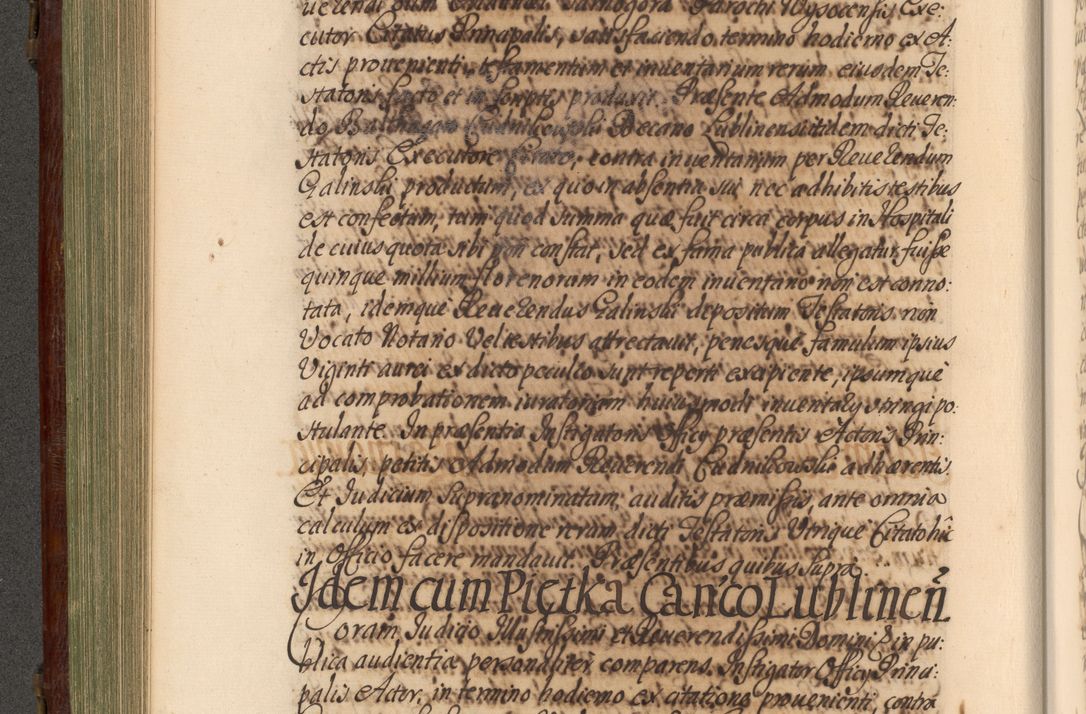 uerendi olim Tarnogora Parochi Wysocensis Exe:
cutor Citatus Principalis, satisfaciendo termino hodierno ex A:
ctis prouenienti, testamentum et inuentarium rerum eiusdem Te:
statoris facto et in scriptis produxit. Præsente Admodum Reueren:
do Decano Lublinensi itidem dicti Te:
statoris Executore Citato, contra inuentarium per Reuerendum
Galinski productum, ex quo in absentia sui nec adhibitis testibus
est confectum, tum quod summa quæ fuit circa corpus in Hospitali
de cuius quota sibi non constat, sed ex fama publica allegatur fuisse
quinque millium florenorum in eodem inuentario non est conno:
tata, idemque Reuerendus Galinski depositum Testatoris non
Vocato Notario Vel testibus attrectauit, penesque famulum ipsius
Viginti aurei ex dicto peculio sunt reperti excipiente, ipsumque
ad comprobationem iuratoriam huiusmodi inuentarij stringi po:
stulante. In præsentia Instigatoris Officij præsentis Actoris Prin:
cipalis petitis Admodum Reuerendi Cudnikowski adhærentis.
Et Iudicium Supranominatum, auditis præmissis, ante omnia
calculum ex dispositione rerum dicti Testatoris Utrique Citato hic
in Officio facere mandauit. Præsentibus quibus supra.
Idem cum Piętka Canco Lublinen
Coram Iudicio Illustrissimi et Reuerendissimi Domini E in pu:
blica audientia personaliter comparens Instigator Officij Princi:
palis Actor, in termino hodierno ex citatione prouenienti, contra